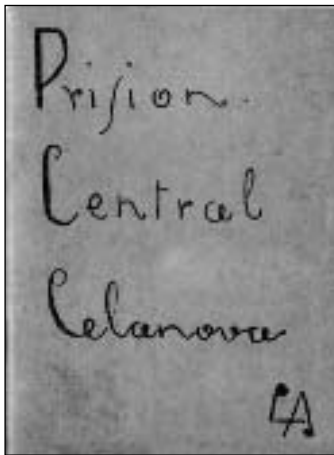 Prision
Central
Celanova
LA